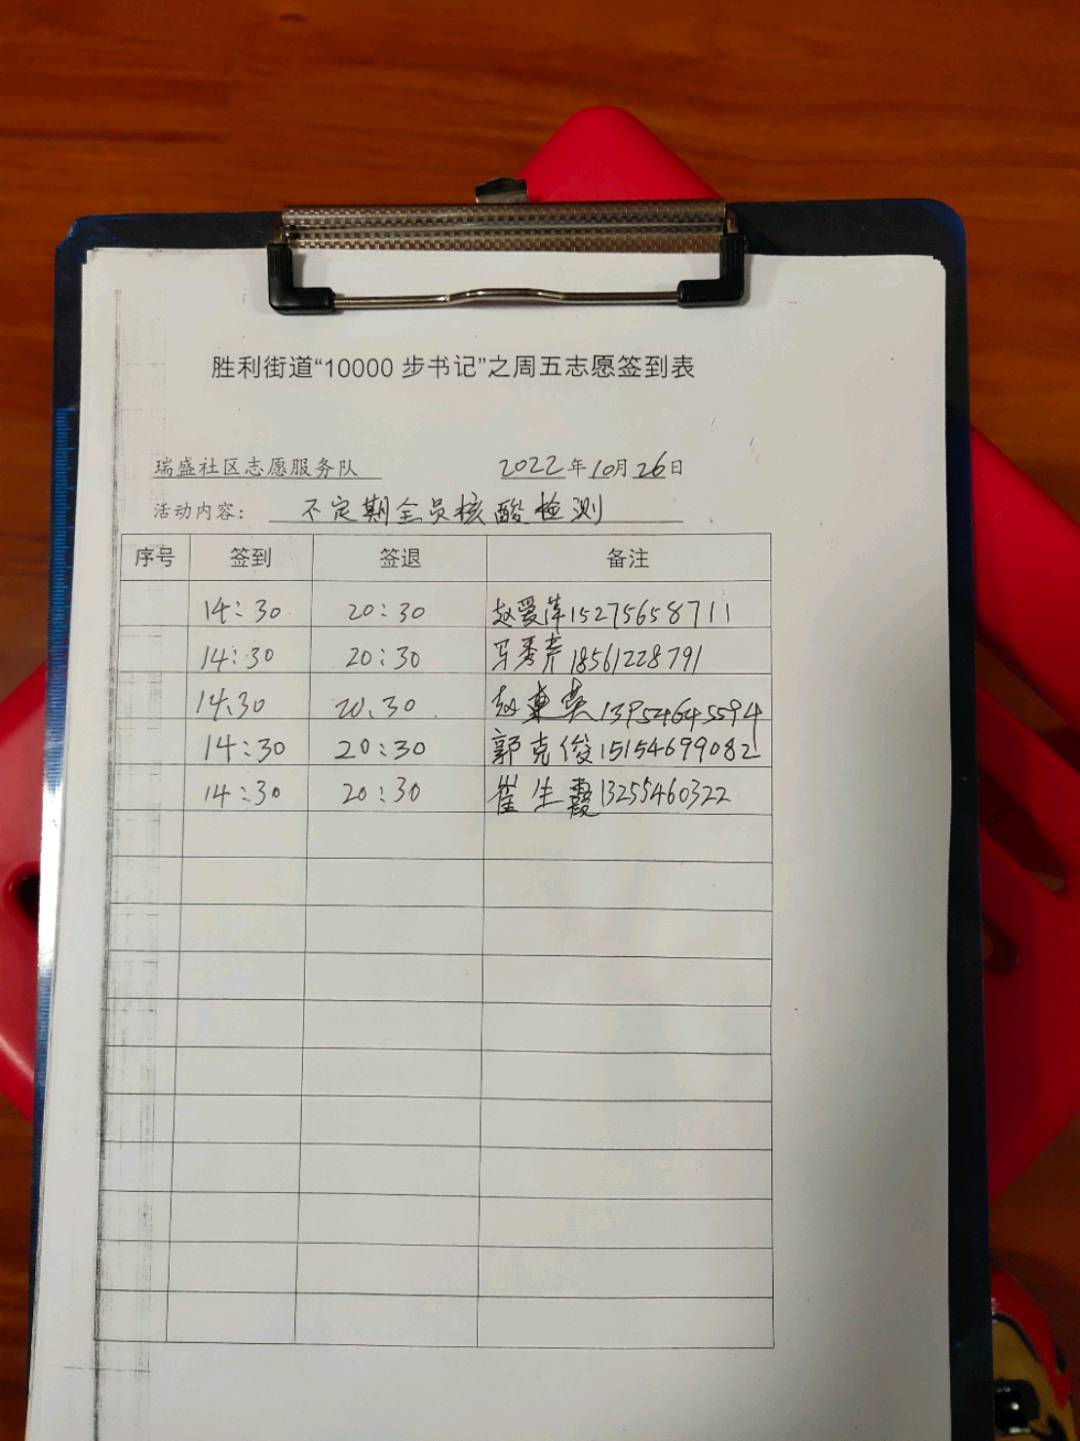 胜利街道“10000 步书记”之周五志愿签到表
瑞盛社区志愿服务队 2022年10月26日
活动内容： 不定期全员核酸检测
序号 签到 签退 备注
14:30 20:30 赵爱萍15275658711
14:30 20:30 马秀芹18561228791
14:30 20:30 赵东英13954645594
14:30 20:30 郭克俊15154699082
14:30 20:30 崔生霞13255460322